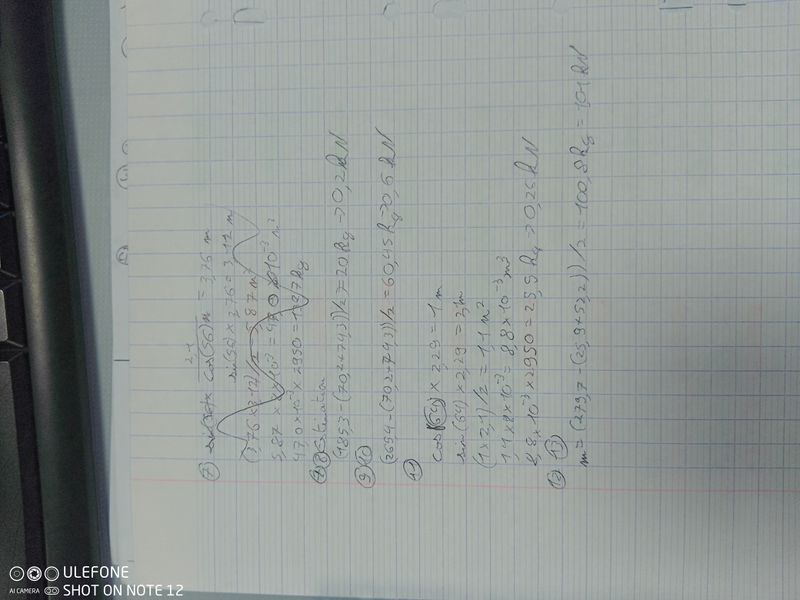 ⑦ 2,1 / cos(56) m = 3,76 m
sin(56) × 3,76 = 3,12 m
(3,76×3,12)/2 = 5,87 m²
5,87 × 8×10⁻³ = 47,0 × 10⁻³ m³
47,0×10⁻³ × 2950 = 138,7 kg
⑦⑧ Estimation
(185,3-(70,2+74,3))/2 = 20 kg → 0,2 kN
⑨⑩
(265,4-(70,2+74,3))/2 = 60,45 kg → 0,6 kN
⑪
cos(64) × 2,29 = 1 m
sin(64) × 2,29 = 2,1 m
(1×2,1)/2 = 1,1 m²
1,1×8×10⁻³ = 8,8×10⁻³ m³
8,8×10⁻³ × 2950 = 25,9 kg → 0,26 kN
⑫ ⑬
m = (279,7-(25,9+52,2))/2 = 100,8 kg = 1,01 kN
ULEFONE
AI CAMERA SHOT ON NOTE 12